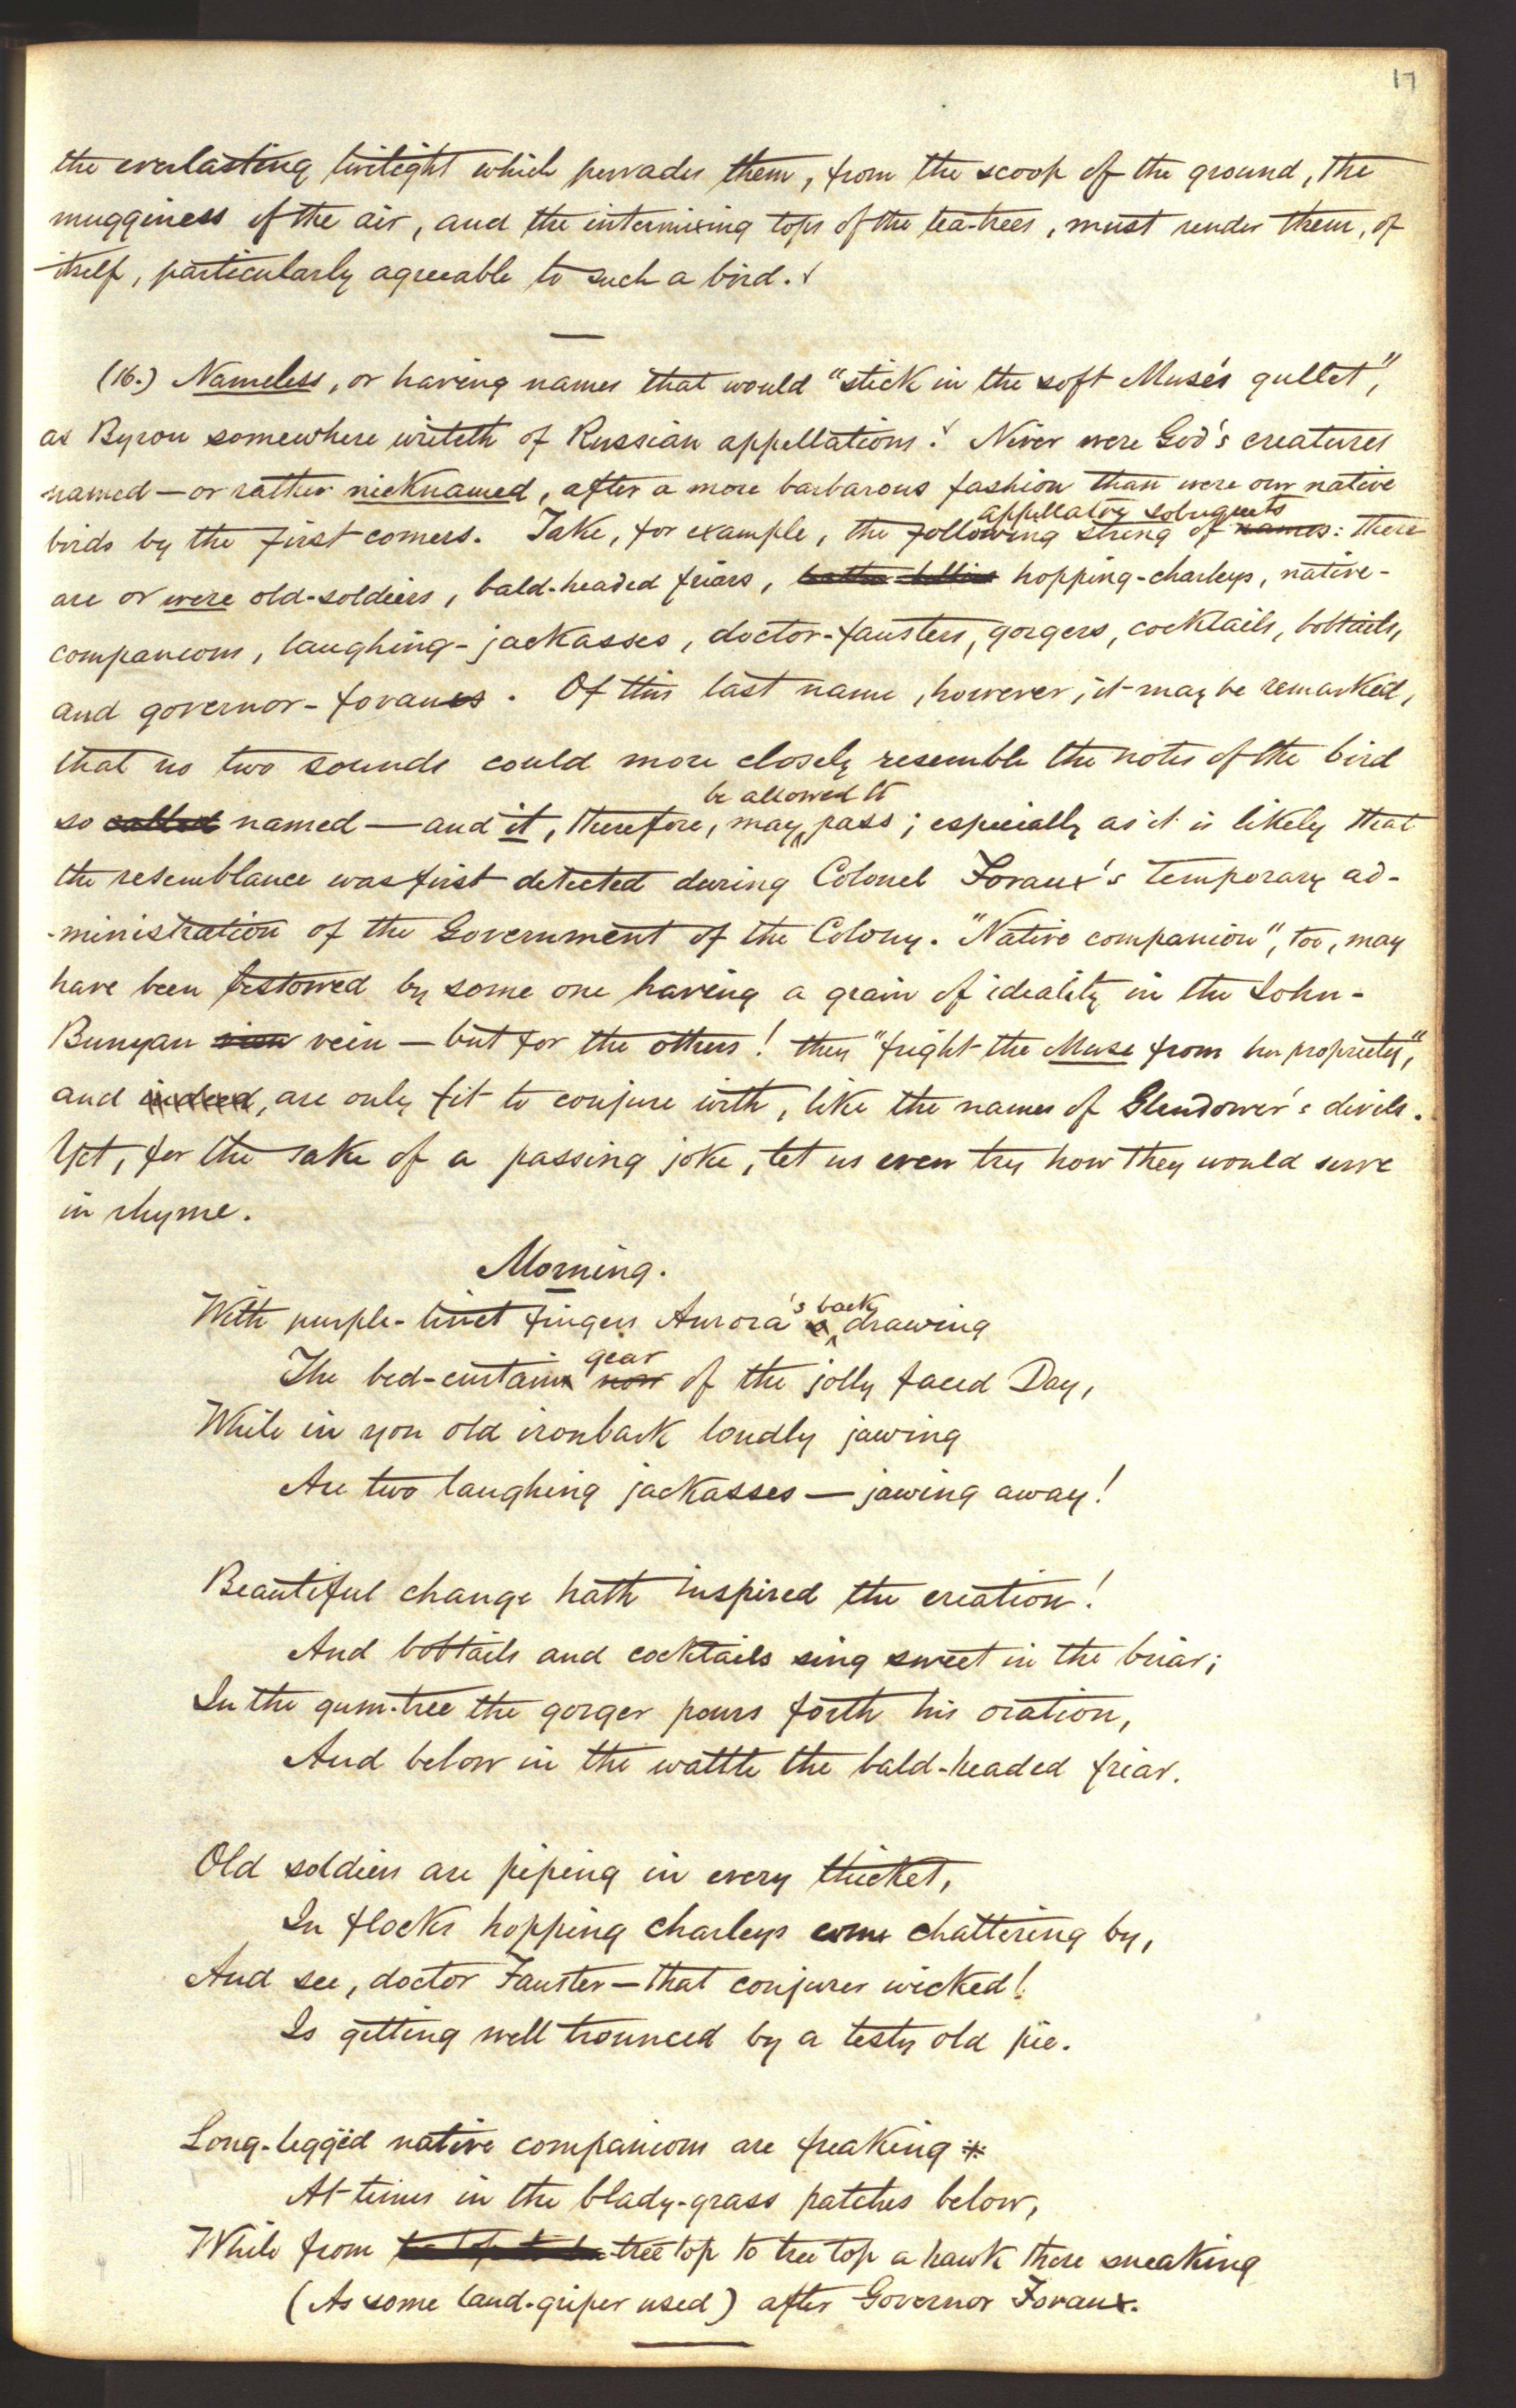 17
the everlasting twilight which pervades them, from the scoop of the ground, the
mugginess of the air, and the intermixing tops of the tea-trees, must render them, of
itself, particularly agreeable to such a bird.
(16.) Nameless, or having names that would "stick in the soft Muse's gullet",
as Byron somewhere writeth of Russian appellations. Never were God's creatures
named — or rather nicknamed, after a more barbarous fashion than were our native
appellatory sobriquets
birds by the first comers. Take, for example, the following string of names: there
are or were old-soldiers, bald-headed friars, hopping-charleys, native-
companions, laughing-jackasses, doctor-fausters, gorgers, cocktails, bobtails,
and governor-fovaues. Of this last name, however, it may be remarked,
that no two sounds could more closely resemble the notes of the bird
be allowed to
so called named — and it, therefore, may pass; especially as it is likely that
the resemblance was first detected during Colonel Fovaux's temporary ad-
-ministration of the Government of the Colony. "Native companion", too, may
have been bestowed by some one having a grain of ideality in the John-
Bunyan vein — but for the others! they "fright the Muse from her propriety",
and indeed, are only fit to conjure with, like the names of Glendower's divels.
Yet, for the sake of a passing joke, let us even try how they would serve
in rhyme.
Morning.
's back
With purple-tinct fingers Aurora drawing
gear
The bed-curtain now of the jolly faced Day,
While in yon old ironbark loudly jawing
Are two laughing jackasses — jawing away!
Beautiful change hath inspired the creation!
And bobtails and cocktails sing sweet in the briar;
In the gum-tree the gorger pours forth his oration,
And below in the wattle the bald-headed friar.
Old soldiers are piping in every thicket,
In flocks hopping charleys come chattering by,
And see, doctor Fauster — that conjurer wicked!
Is getting well trounced by a testy old pie.
Long-leggëd native companions are freaking *
At times in the blady-grass patches below,
While from tree top to tree top a hawk there sneaking
(As some land-griper used) after Governor Fovaux.